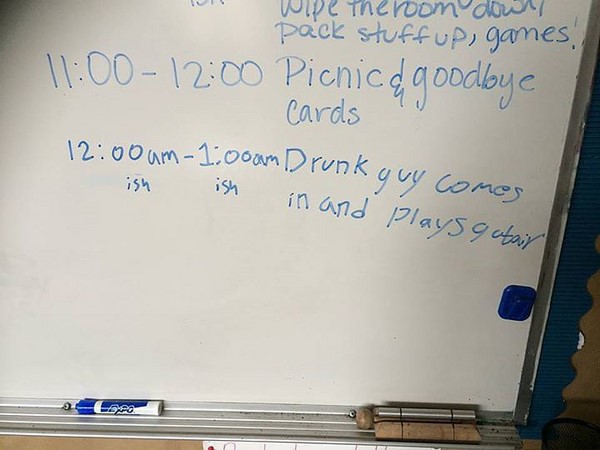 ish
Wipe the room down,
pack stuff up, games!
11:00-12:00 Picnic & goodbye
cards
12:00am-1:00am Drunk guy comes
ish ish in and plays gutair
EXPO